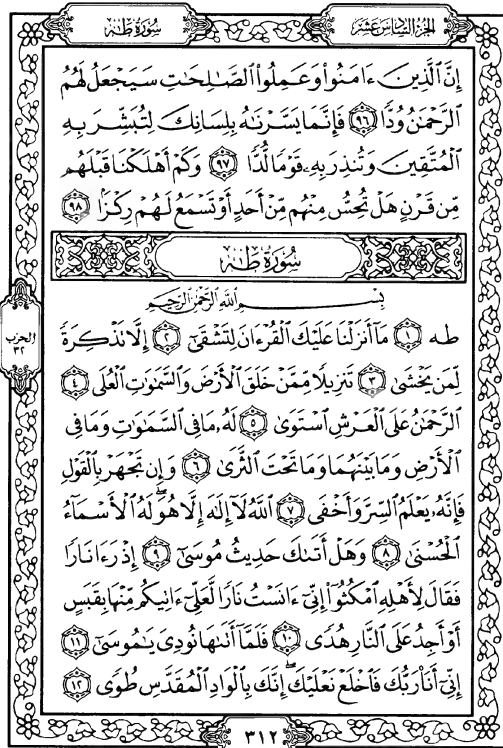 سُورَةُ طه
الجُزْءُ السَّادِسَ عَشَرَ
إِنَّ الَّذِينَ ءَامَنُوا۟ وَعَمِلُوا۟ الصَّـٰلِحَـٰتِ سَيَجْعَلُ لَهُمُ
الرَّحْمَـٰنُ وُدًّا ٩٦ فَإِنَّمَا يَسَّرْنَـٰهُ بِلِسَانِكَ لِتُبَشِّرَ بِهِ
الْمُتَّقِينَ وَتُنذِرَ بِهِۦ قَوْمًا لُّدًّا ٩٧ وَكَمْ أَهْلَكْنَا قَبْلَهُم
مِّن قَرْنٍ هَلْ تُحِسُّ مِنْهُم مِّنْ أَحَدٍ أَوْ تَسْمَعُ لَهُمْ رِكْزًا ٩٨
سُورَةُ طه
بِسْمِ اللَّهِ الرَّحْمَـٰنِ الرَّحِيمِ
طه ١ مَآ أَنزَلْنَا عَلَيْكَ الْقُرْءَانَ لِتَشْقَىٰٓ ٢ إِلَّا تَذْكِرَةً
لِّمَن يَخْشَىٰ ٣ تَنزِيلًا مِّمَّنْ خَلَقَ الْأَرْضَ وَالسَّمَـٰوَٰتِ الْعُلَى ٤
الرَّحْمَـٰنُ عَلَى الْعَرْشِ اسْتَوَىٰ ٥ لَهُۥ مَا فِى السَّمَـٰوَٰتِ وَمَا فِى
الْأَرْضِ وَمَا بَيْنَهُمَا وَمَا تَحْتَ الثَّرَىٰ ٦ وَإِن تَجْهَرْ بِالْقَوْلِ
فَإِنَّهُۥ يَعْلَمُ السِّرَّ وَأَخْفَى ٧ اللَّهُ لَآ إِلَـٰهَ إِلَّا هُوَ ۖ لَهُ الْأَسْمَآءُ
الْحُسْنَىٰ ٨ وَهَلْ أَتَىٰكَ حَدِيثُ مُوسَىٰٓ ٩ إِذْ رَءَا نَارًا
فَقَالَ لِأَهْلِهِ امْكُثُوٓا۟ إِنِّىٓ ءَانَسْتُ نَارًا لَّعَلِّىٓ ءَاتِيكُم مِّنْهَا بِقَبَسٍ
أَوْ أَجِدُ عَلَى النَّارِ هُدًى ١٠ فَلَمَّآ أَتَىٰهَا نُودِىَ يَـٰمُوسَىٰٓ ١١
إِنِّىٓ أَنَا۠ رَبُّكَ فَاخْلَعْ نَعْلَيْكَ ۖ إِنَّكَ بِالْوَادِ الْمُقَدَّسِ طُوًى ١٢
الحزب
٣٢
٣١٢